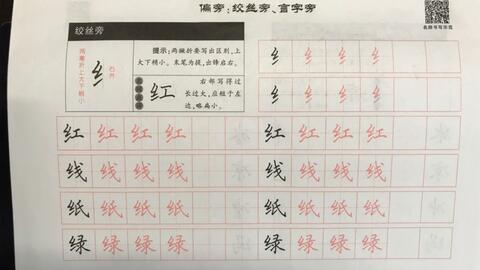 偏旁:绞丝旁、言字旁
名师书写示范
绞丝旁
两撇折上大下稍小
纟
提示:两撇折要写出区别,上大下稍小。末笔为提,出锋启右。
红
右部写得过长过大,应短于左边,略扁小。
纟 纟 纟 纟
纟 纟 纟 纟
红 红 红 红 红 红 红 红
线 线 线 线 线 线 线 线
纸 纸 纸 纸 纸 纸 纸 纸
绿 绿 绿 绿 绿 绿 绿 绿